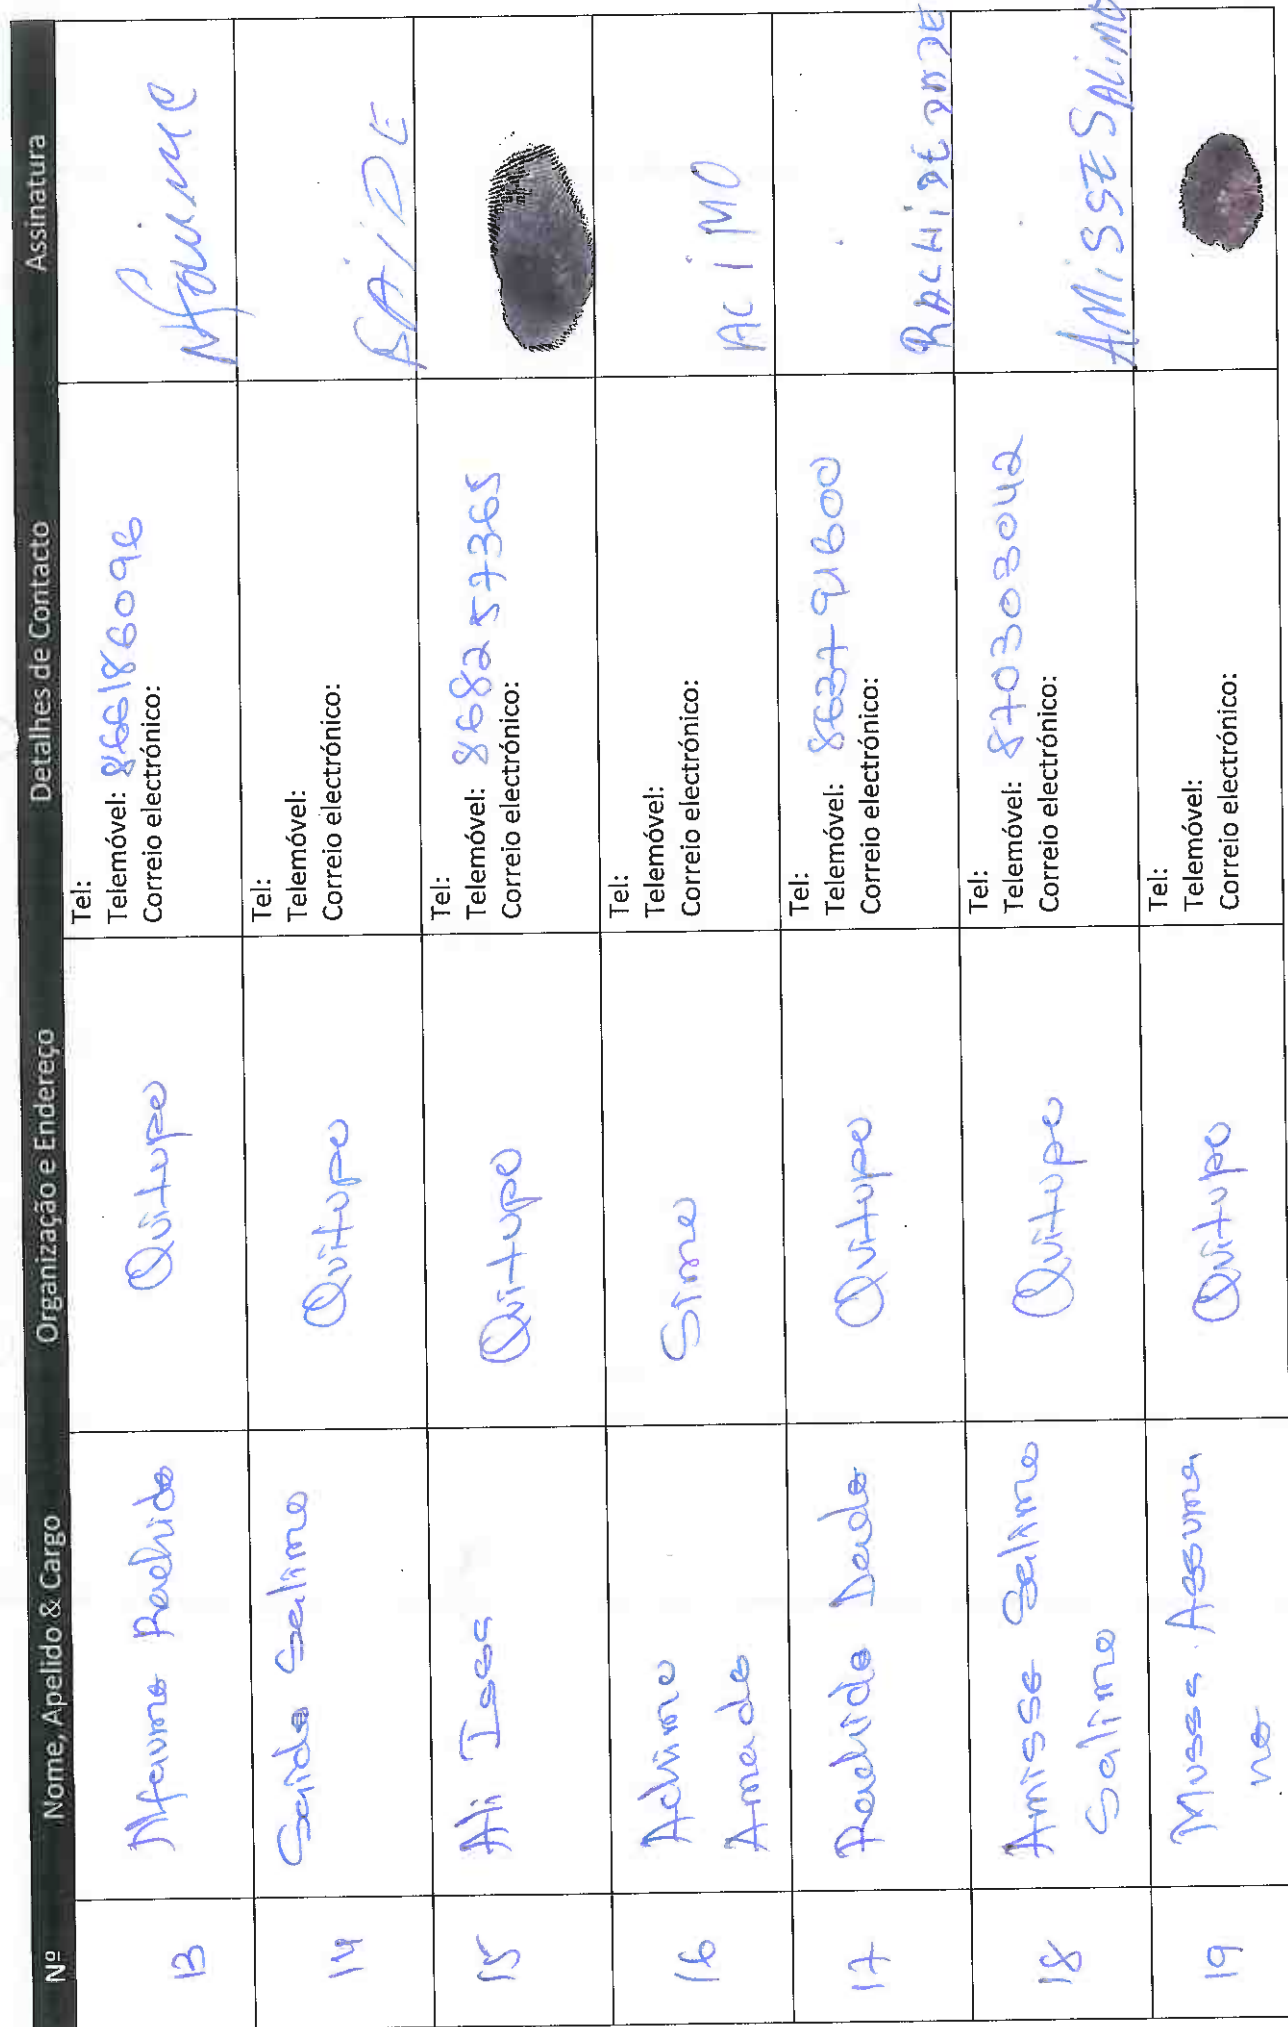 Nº Nome, Apelido & Cargo Organização e Endereço Detalhes de Contacto Assinatura
13 Nfaume Rachide Quitupo Tel:
Telemóvel: 866186096
Correio electrónico:
Nfaume
14 Saide Salimo Quitupo Tel:
Telemóvel:
Correio electrónico:
SAiDE
15 Ali Issa Quitupo Tel:
Telemóvel: 868257365
Correio electrónico:
16 Achimo
Amade
Simo Tel:
Telemóvel:
Correio electrónico:
ACiMO
17 Rachide Daude Quitupo Tel:
Telemóvel: 863791600
Correio electrónico:
RACHiDE
18 Amisse Salimo
Salimo
Quitupo Tel:
Telemóvel: 870303042
Correio electrónico:
AMiSSE SALiMO
19 Mussa Assuma
ne
Quitupo Tel:
Telemóvel:
Correio electrónico: